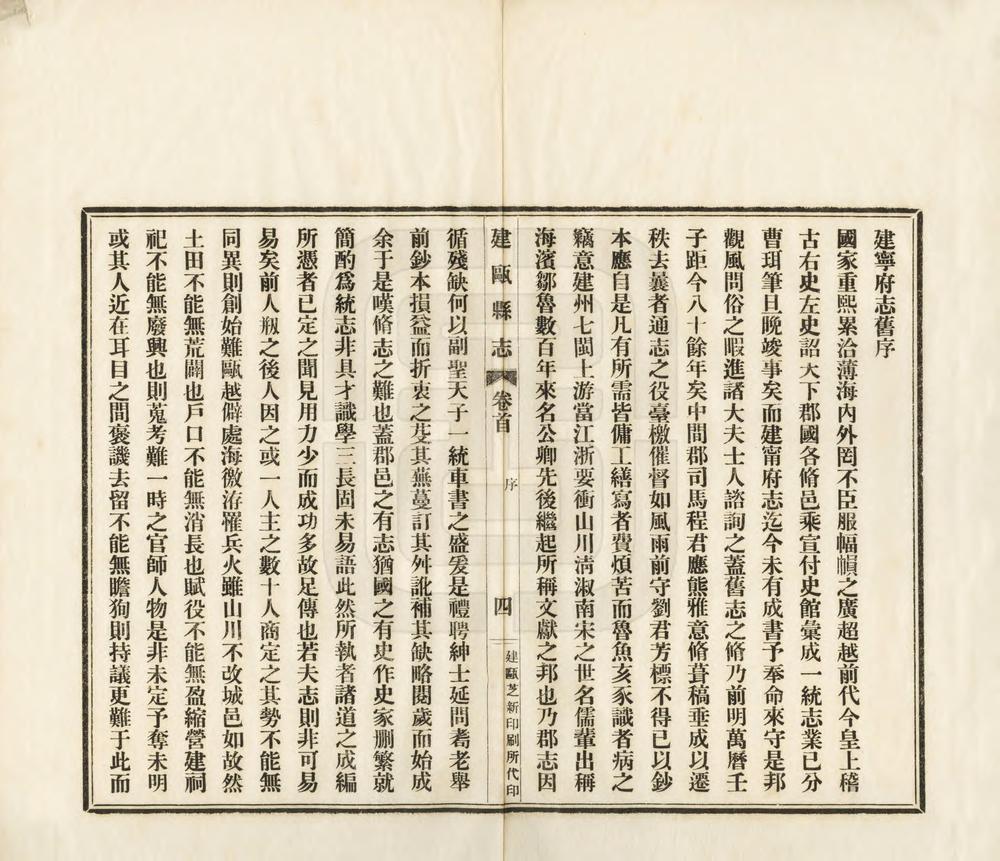 建寧府志舊序
國家重熙累洽薄海內外罔不臣服幅幀之廣超越前代今皇上稽
古右史左史詔大下郡國各脩邑乘宣付史館彙成一統志業已分
曹珥筆旦晚竣事矣而建甯府志迄今未有成書予奉命來守是邦
觀風問俗之暇進諸大夫士人諮詢之蓋舊志之脩乃前明萬曆壬
子距今八十餘年矣中間郡司馬程君應熊雅意脩葺稿垂成以遷
秩去曩者通志之役臺檄催督如風雨前守劉君芳標不得已以鈔
本應自是凡有所需皆傭工繕寫者費煩苦而魯魚亥豕識者病之
竊意建州七閩上游當江浙要衝山川淸淑南宋之世名儒輩出稱
海濱鄒魯數百年來名公卿先後繼起所稱文獻之邦也乃郡志因
建甌縣志 卷首 序 四 建甌芝新印刷所代印
循殘缺何以副聖天子一統車書之盛爰是禮聘紳士延問耆老舉
前鈔本損益而折衷之芟其蕪蔓訂其舛訛補其缺略閱歲而始成
余于是嘆脩志之難也蓋郡邑之有志猶國之有史作史家刪繁就
簡酌爲統志非具才識學三長固未易語此然所執者諸道之成編
所憑者已定之聞見用力少而成功多故足傳也若夫志則非可易
易矣前人剏之後人因之或一人主之數十人商定之其勢不能無
同異則創始難甌越僻處海徼洊罹兵火雖山川不改城邑如故然
土田不能無荒闢也戶口不能無消長也賦役不能無盈縮營建祠
祀不能無廢興也則蒐考難一時之官師人物是非未定予奪未明
或其人近在耳目之間褒譏去留不能無瞻狥則持議更難于此而